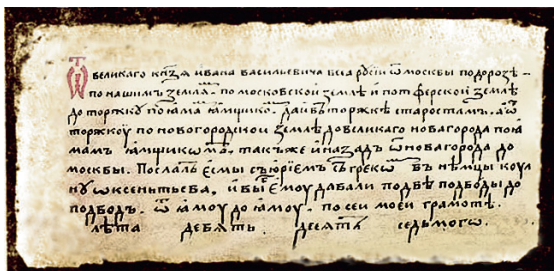 Ѿ великаго кнѧзѧ ивана васильевича всеа рꙋсїи ѿ москвы по дорозѣ –
по нашимъ землѧм. по московской землѣ и по тферской землѣ
до торжкꙋ по ꙗмамъ ꙗмщико. да и въ торжкѣ старостамъ. а ѿ
торжкоу по новогородской землѣ до великаго новагорода по ꙗ
мамъ ꙗмщикѡм. такъ же и назадъ ѿ новагорода до
москвы. послалъ есмы съ юрїемъ съ грекѡм въ нѣмцы коул
ку ѡксентьева. и вы ємоу давали подвѣ подводы до
подводъ. ѿ ꙗмоу до ꙗмоу. по сеи моеи грамотѣ.
лѣта девѧть десѧтъ седьмого.